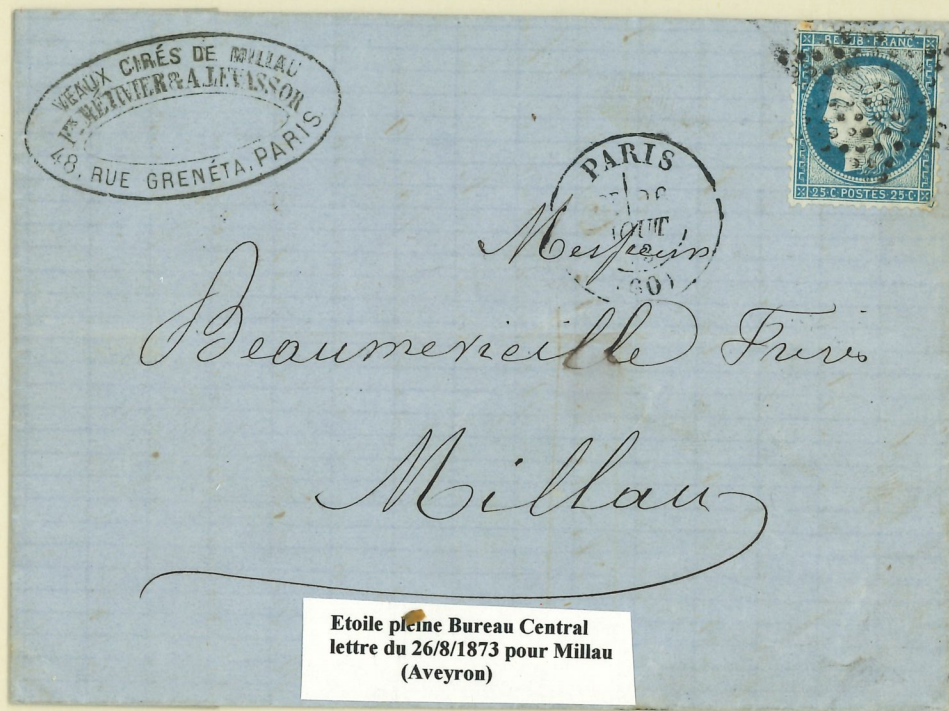 VEAUX CIRÉS DE MILLAU
& A. LEVASSOR
48. RUE GRENÉTA. PARIS
REPUB · FRANC
25 · C · POSTES 25 · C
PARIS
AOUT
(60)
Messieurs
Beaumevieille Frères
Millau
Etoile pleine Bureau Central
lettre du 26/8/1873 pour Millau
(Aveyron)